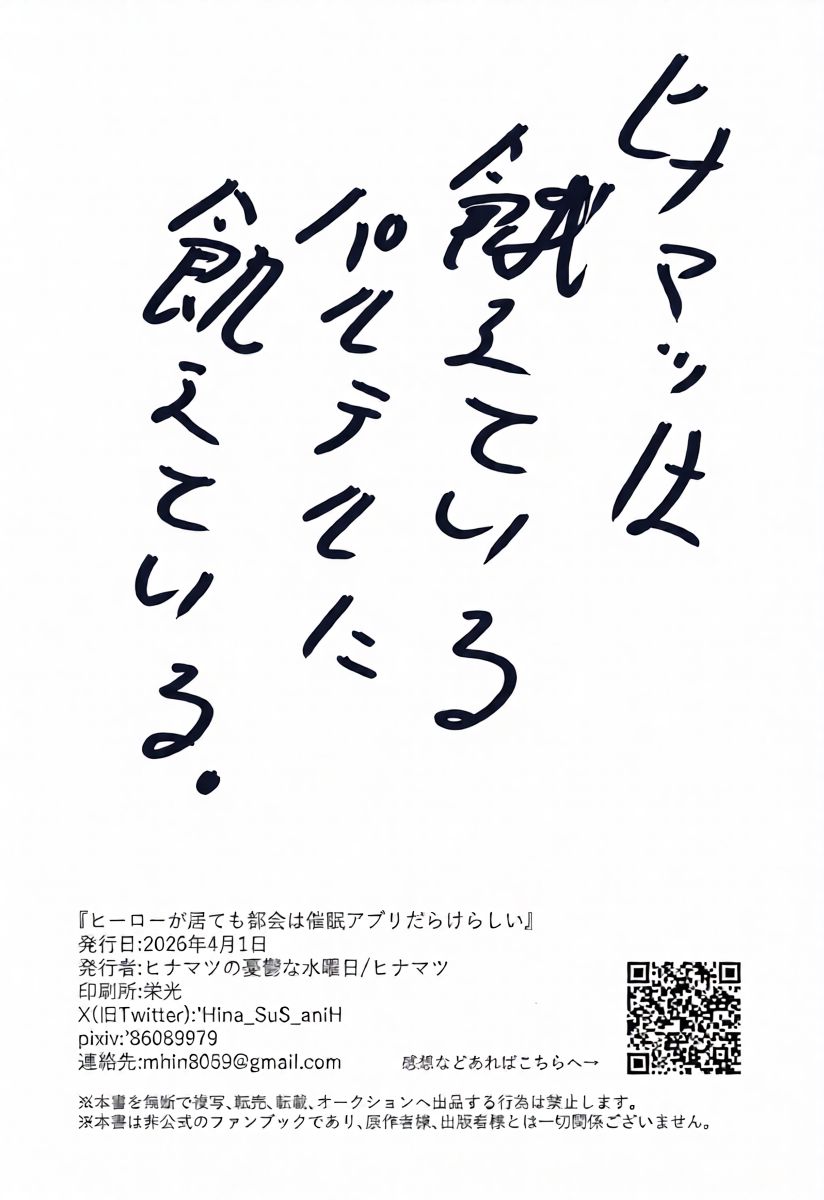 ヒナマツは
餓えている
パルテルた
飢えている.
『ヒーローが居ても都会は催眠アプリだらけらしい』
発行日:2026年4月1日
発行者:ヒナマツの憂鬱な水曜日/ヒナマツ
印刷所:栄光
X(旧Twitter):'Hina_SuS_aniH
pixiv:'86089979
連絡先:mhin8059@gmail.com
感想などあればこちらへ→
※本書を無断で複写、転売、転載、オークションへ出品する行為は禁止します。
※本書は非公式のファンブックであり、原作者様、出版者様とは一切関係ございません。